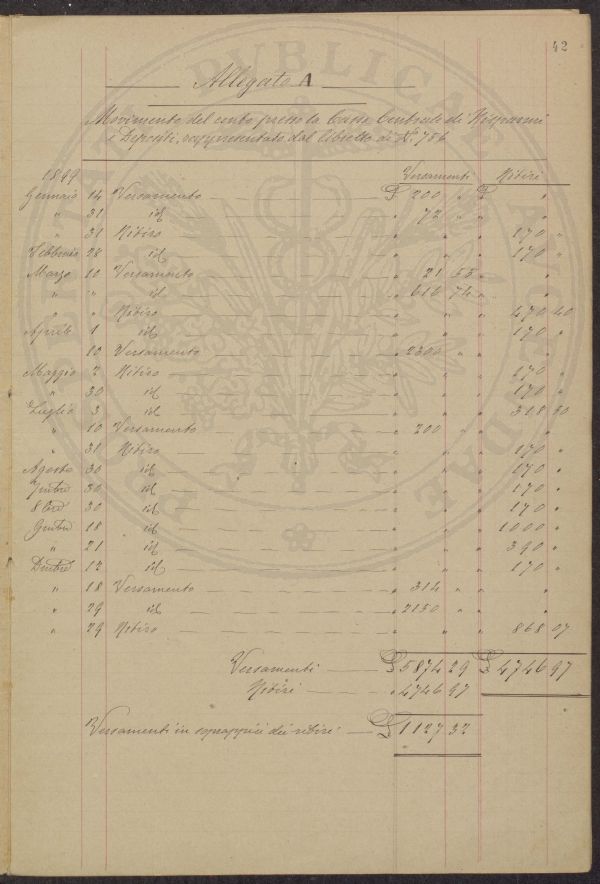 42
Allegato A
Movimento del conto presso la Cassa Centrale di Risparmi
e Depositi, rappresentato dal libretto di N.º 756
1899 Versamenti Ritiri
Gennaio 14 Versamento £ 200 " £ "
" 31 id " 72 " " "
" 31 Ritiro " " " 170 "
Febbraio 28 id " " " 170 "
Marzo 10 Versamento " 21 55 " "
" " id " 616 74 " "
" " Ritiro " " " 470 40
Aprile 1 id " " " 170 "
10 Versamento " 2300 " " "
Maggio 2 Ritiro " " " 170 "
" 30 id " " " 170 "
Luglio 3 id " " " 318 50
" 10 Versamento " 200 " " "
" 31 Ritiro " " " 170 "
Agosto 30 id " " " 170 "
7mbre 30 id " " " 170 "
8bre 30 id " " " 170 "
9mbre 18 id " " " 1000 "
" 21 id " " " 390 "
Dmbre 12 id " " " 170 "
" 18 Versamento " 314 " " "
" 29 id " 2150 " " "
" 29 Ritiro " " " 868 07
Versamenti £ 5874 29 £ 4746 97
Ritiri " 4746 97
Versamenti in soprappiù dei ritiri £ 1127 32
PROSPERITATI PUBLICAE AUGENDAE